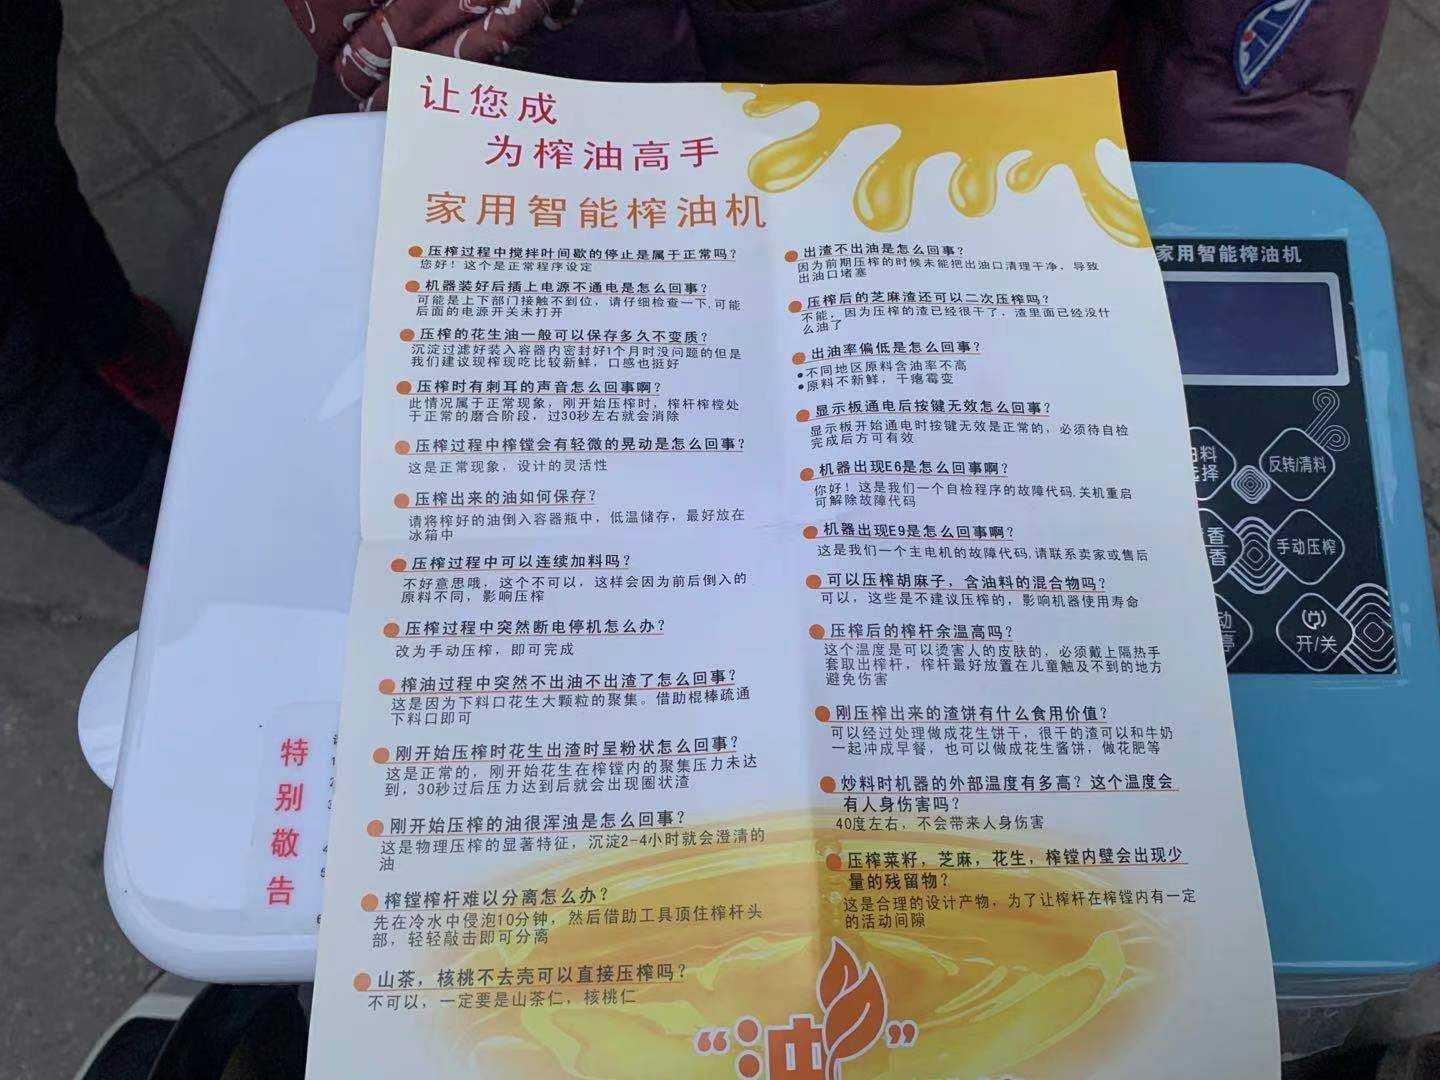 让您成
为榨油高手
家用智能榨油机
压榨过程中搅拌叶间歇的停止是属于正常吗?
您好!这个是正常程序设定
机器装好后插上电源不通电是怎么回事?
可能是上下部门接触不到位,请仔细检查一下,可能
后面的电源开关未打开
压榨的花生油一般可以保存多久不变质?
沉淀过滤好装入容器内密封好1个月时没问题的但是
我们建议现榨现吃比较新鲜,口感也挺好
压榨时有刺耳的声音怎么回事啊?
此情况属于正常现象,刚开始压榨时,榨杆榨樘处
于正常的磨合阶段,过30秒左右就会消除
压榨过程中榨镗会有轻微的晃动是怎么回事?
这是正常现象,设计的灵活性
压榨出来的油如何保存?
请将榨好的油倒入容器瓶中,低温储存,最好放在
冰箱中
压榨过程中可以连续加料吗?
不好意思哦,这个不可以,这样会因为前后倒入的
原料不同,影响压榨
压榨过程中突然断电停机怎么办?
改为手动压榨,即可完成
榨油过程中突然不出油不出渣了怎么回事?
这是因为下料口花生大颗粒的聚集。借助棍棒疏通
下料口即可
刚开始压榨时花生出渣时呈粉状怎么回事?
这是正常的,刚开始花生在榨镗内的聚集压力未达
到,30秒过后压力达到后就会出现圈状渣
刚开始压榨的油很浑浊是怎么回事?
这是物理压榨的显著特征,沉淀2-4小时就会澄清的
油
榨镗榨杆难以分离怎么办?
先在冷水中侵泡10分钟,然后借助工具顶住榨杆头
部,轻轻敲击即可分离
山茶,核桃不去壳可以直接压榨吗?
不可以,一定要是山茶仁,核桃仁
出渣不出油是怎么回事?
因为前期压榨的时候未能把出油口清理干净,导致
出油口堵塞
压榨后的芝麻渣还可以二次压榨吗?
不能,因为压榨的渣已经很干了,渣里面已经没什
么油了
出油率偏低是怎么回事?
•不同地区原料含油率不高
•原料不新鲜,干瘪霉变
显示板通电后按键无效怎么回事?
显示板开始通电时按键无效是正常的,必须待自检
完成后方可有效
机器出现E6是怎么回事啊?
你好!这是我们一个自检程序的故障代码,关机重启
可解除故障代码
机器出现E9是怎么回事啊?
这是我们一个主电机的故障代码,请联系卖家或售后
可以压榨胡麻子,含油料的混合物吗?
可以,这些是不建议压榨的,影响机器使用寿命
压榨后的榨杆余温高吗?
这个温度是可以烫害人的皮肤的,必须戴上隔热手
套取出榨杆,榨杆最好放置在儿童触及不到的地方
避免伤害
刚压榨出来的渣饼有什么食用价值?
可以经过处理做成花生饼干,很干的渣可以和牛奶
一起冲成早餐,也可以做成花生酱饼,做花肥等
炒料时机器的外部温度有多高?这个温度会
有人身伤害吗?
40度左右,不会带来人身伤害
压榨菜籽,芝麻,花生,榨镗内壁会出现少
量的残留物?
这是合理的设计产物,为了让榨杆在榨镗内有一定
的活动间隙
“油”
特别敬告
家用智能榨油机
料
选择
反转/清料
香
香
手动压榨
动
停
开/关